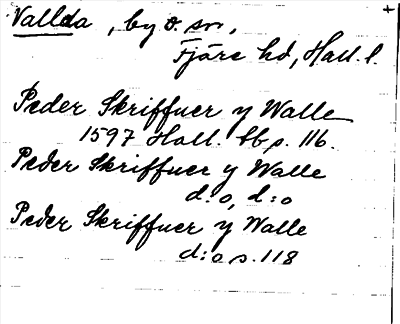 Vallda, by o. sn,
Fjäre hd, Hall. l.
Peder Skriffuer y Walle
1597 Hall. tb s. 116.
Peder Skriffuer y Walle
d:o, d:o
Peder Skriffuer y Walle
d:o s. 118